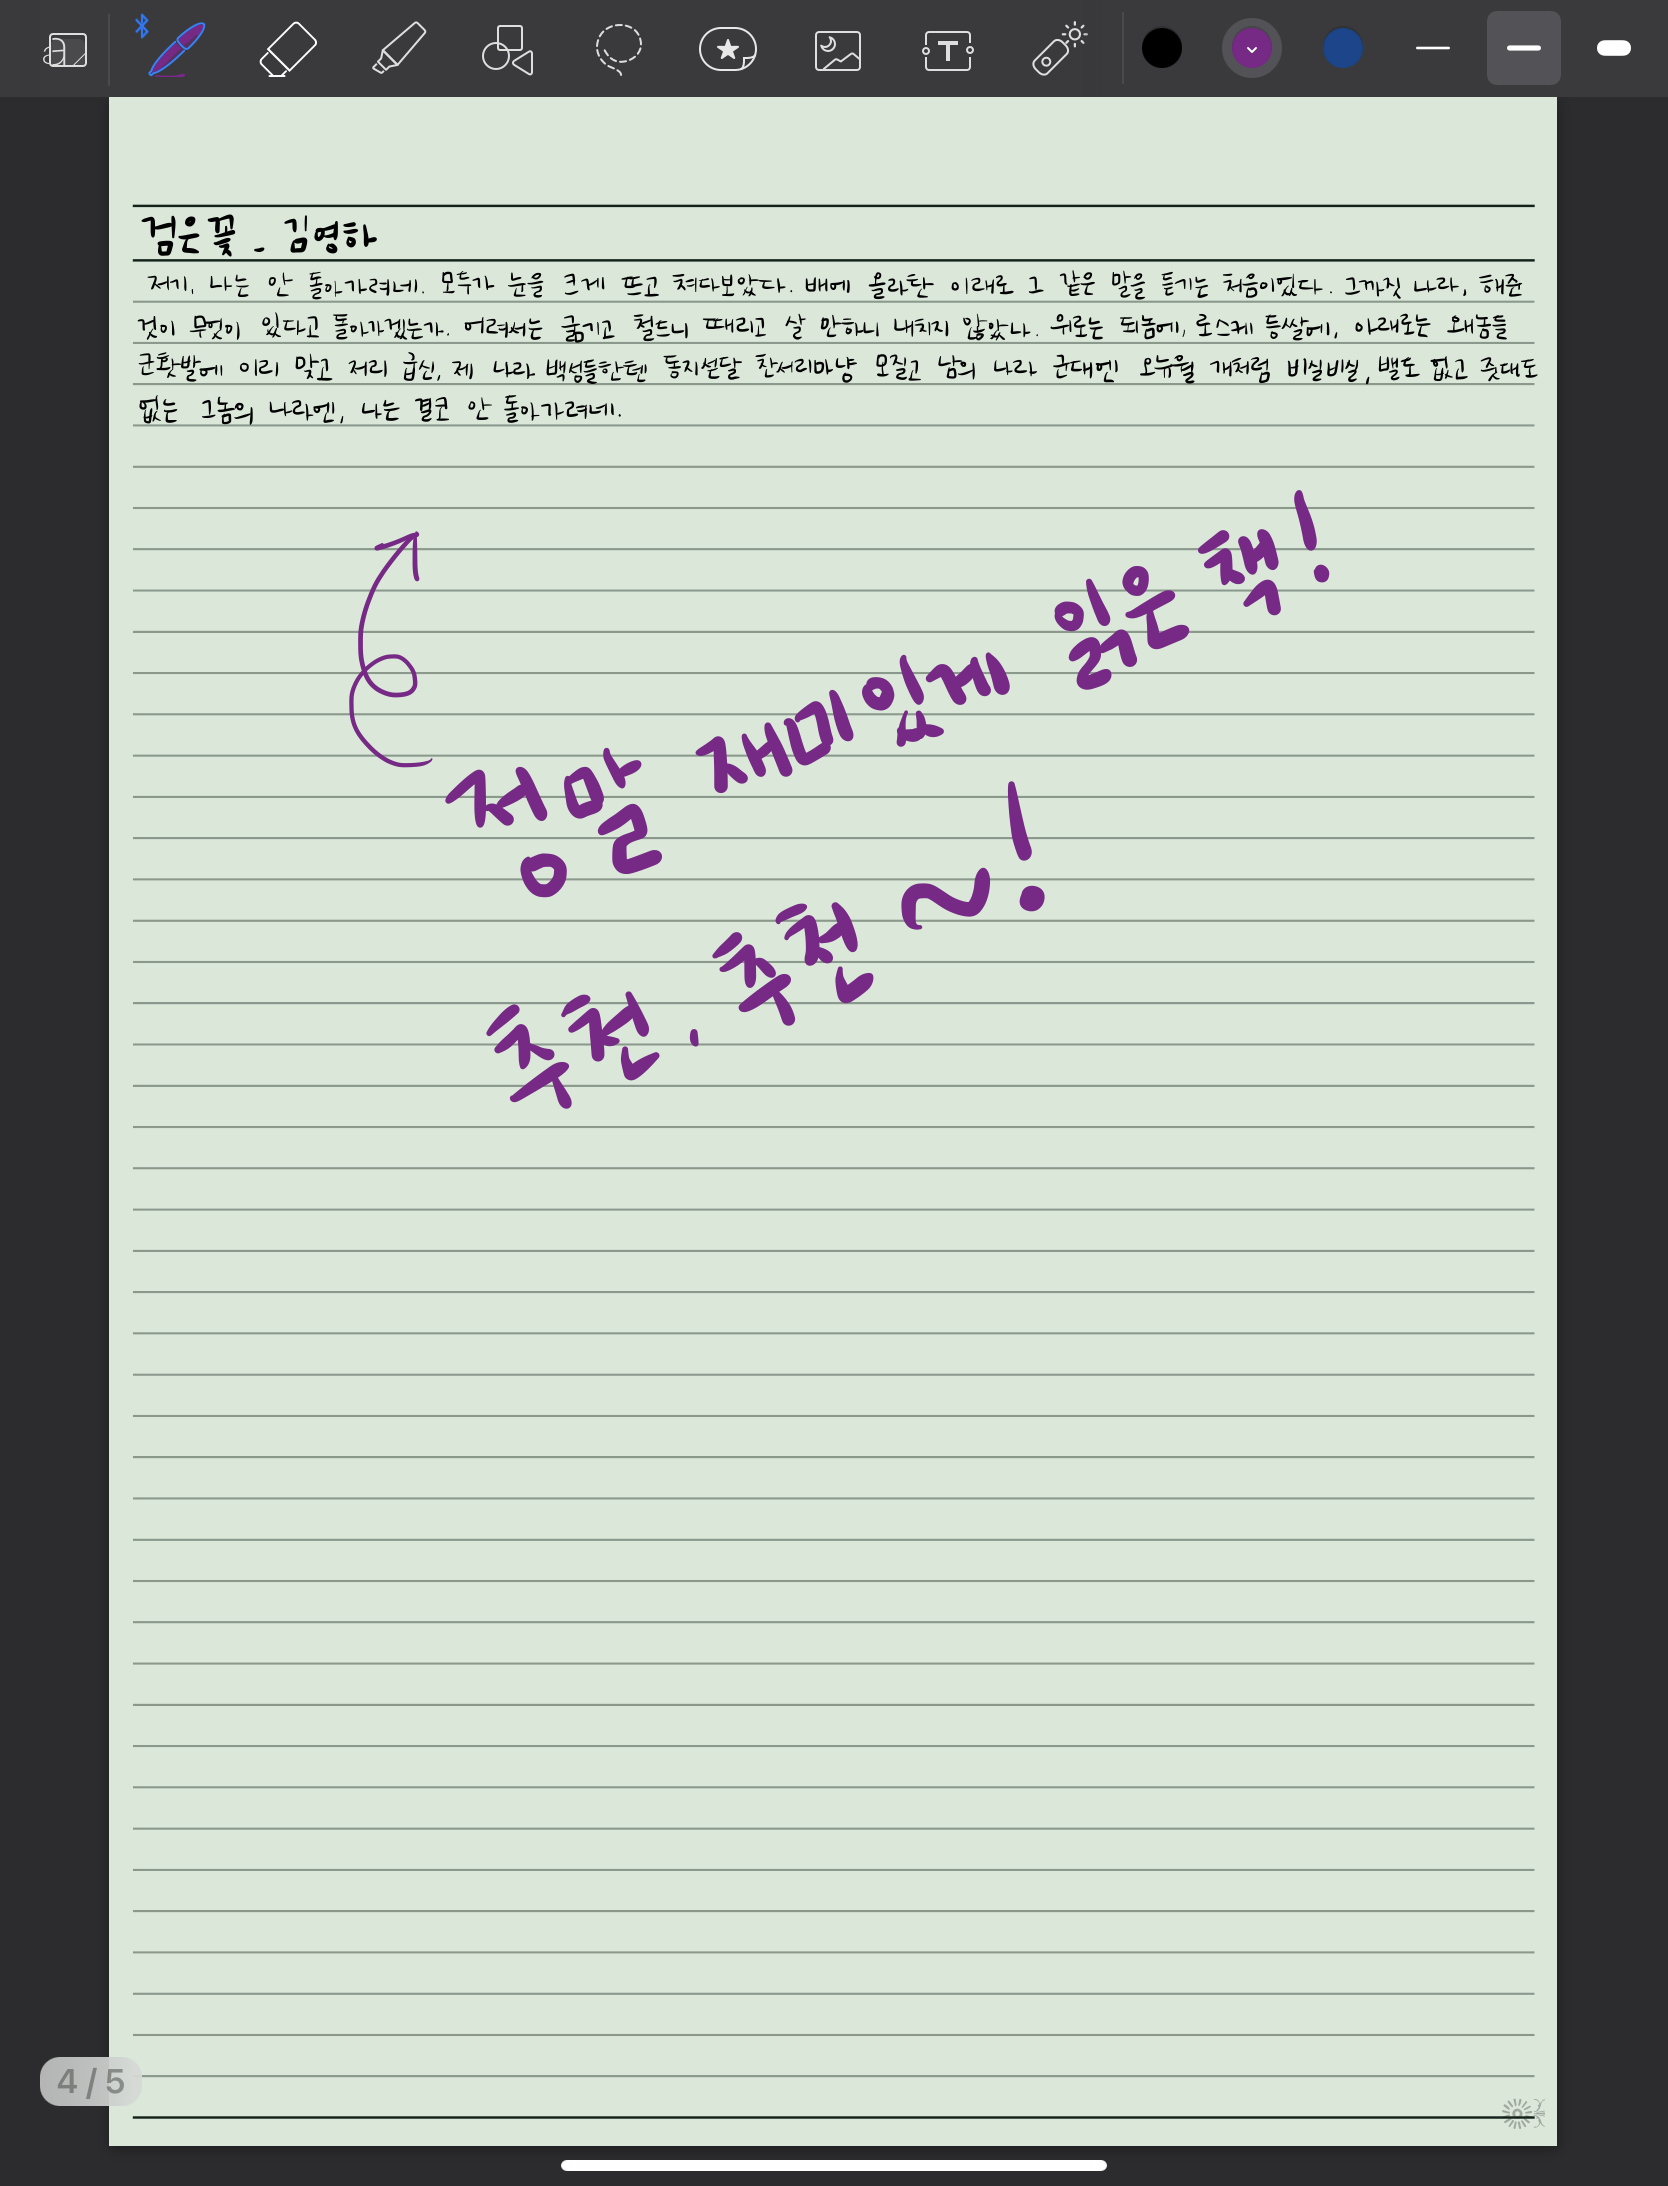 검은꽃 - 김영하
저기, 나는 안 돌아가려네. 모두가 눈을 크게 뜨고 쳐다보았다. 배에 올라탄 이래로 그 같은 말을 듣기는 처음이었다. 그까짓 나라, 해준
것이 무엇이 있다고 돌아가겠는가. 어려서는 굶기고 철드니 때리고 살 만하니 내치지 않았나. 위로는 되놈에, 로스케 등쌀에, 아래로는 왜놈들
군홧발에 이리 맞고 저리 굽신, 제 나라 백성들한텐 동지섣달 찬서리마냥 모질고 남의 나라 군대엔 오뉴월 개처럼 비실비실, 밸도 없고 줏대도
없는 그놈의 나라엔, 나는 결코 안 돌아가려네.
정말 재미있게 읽은 책!
추천, 추천~!
4 / 5
T